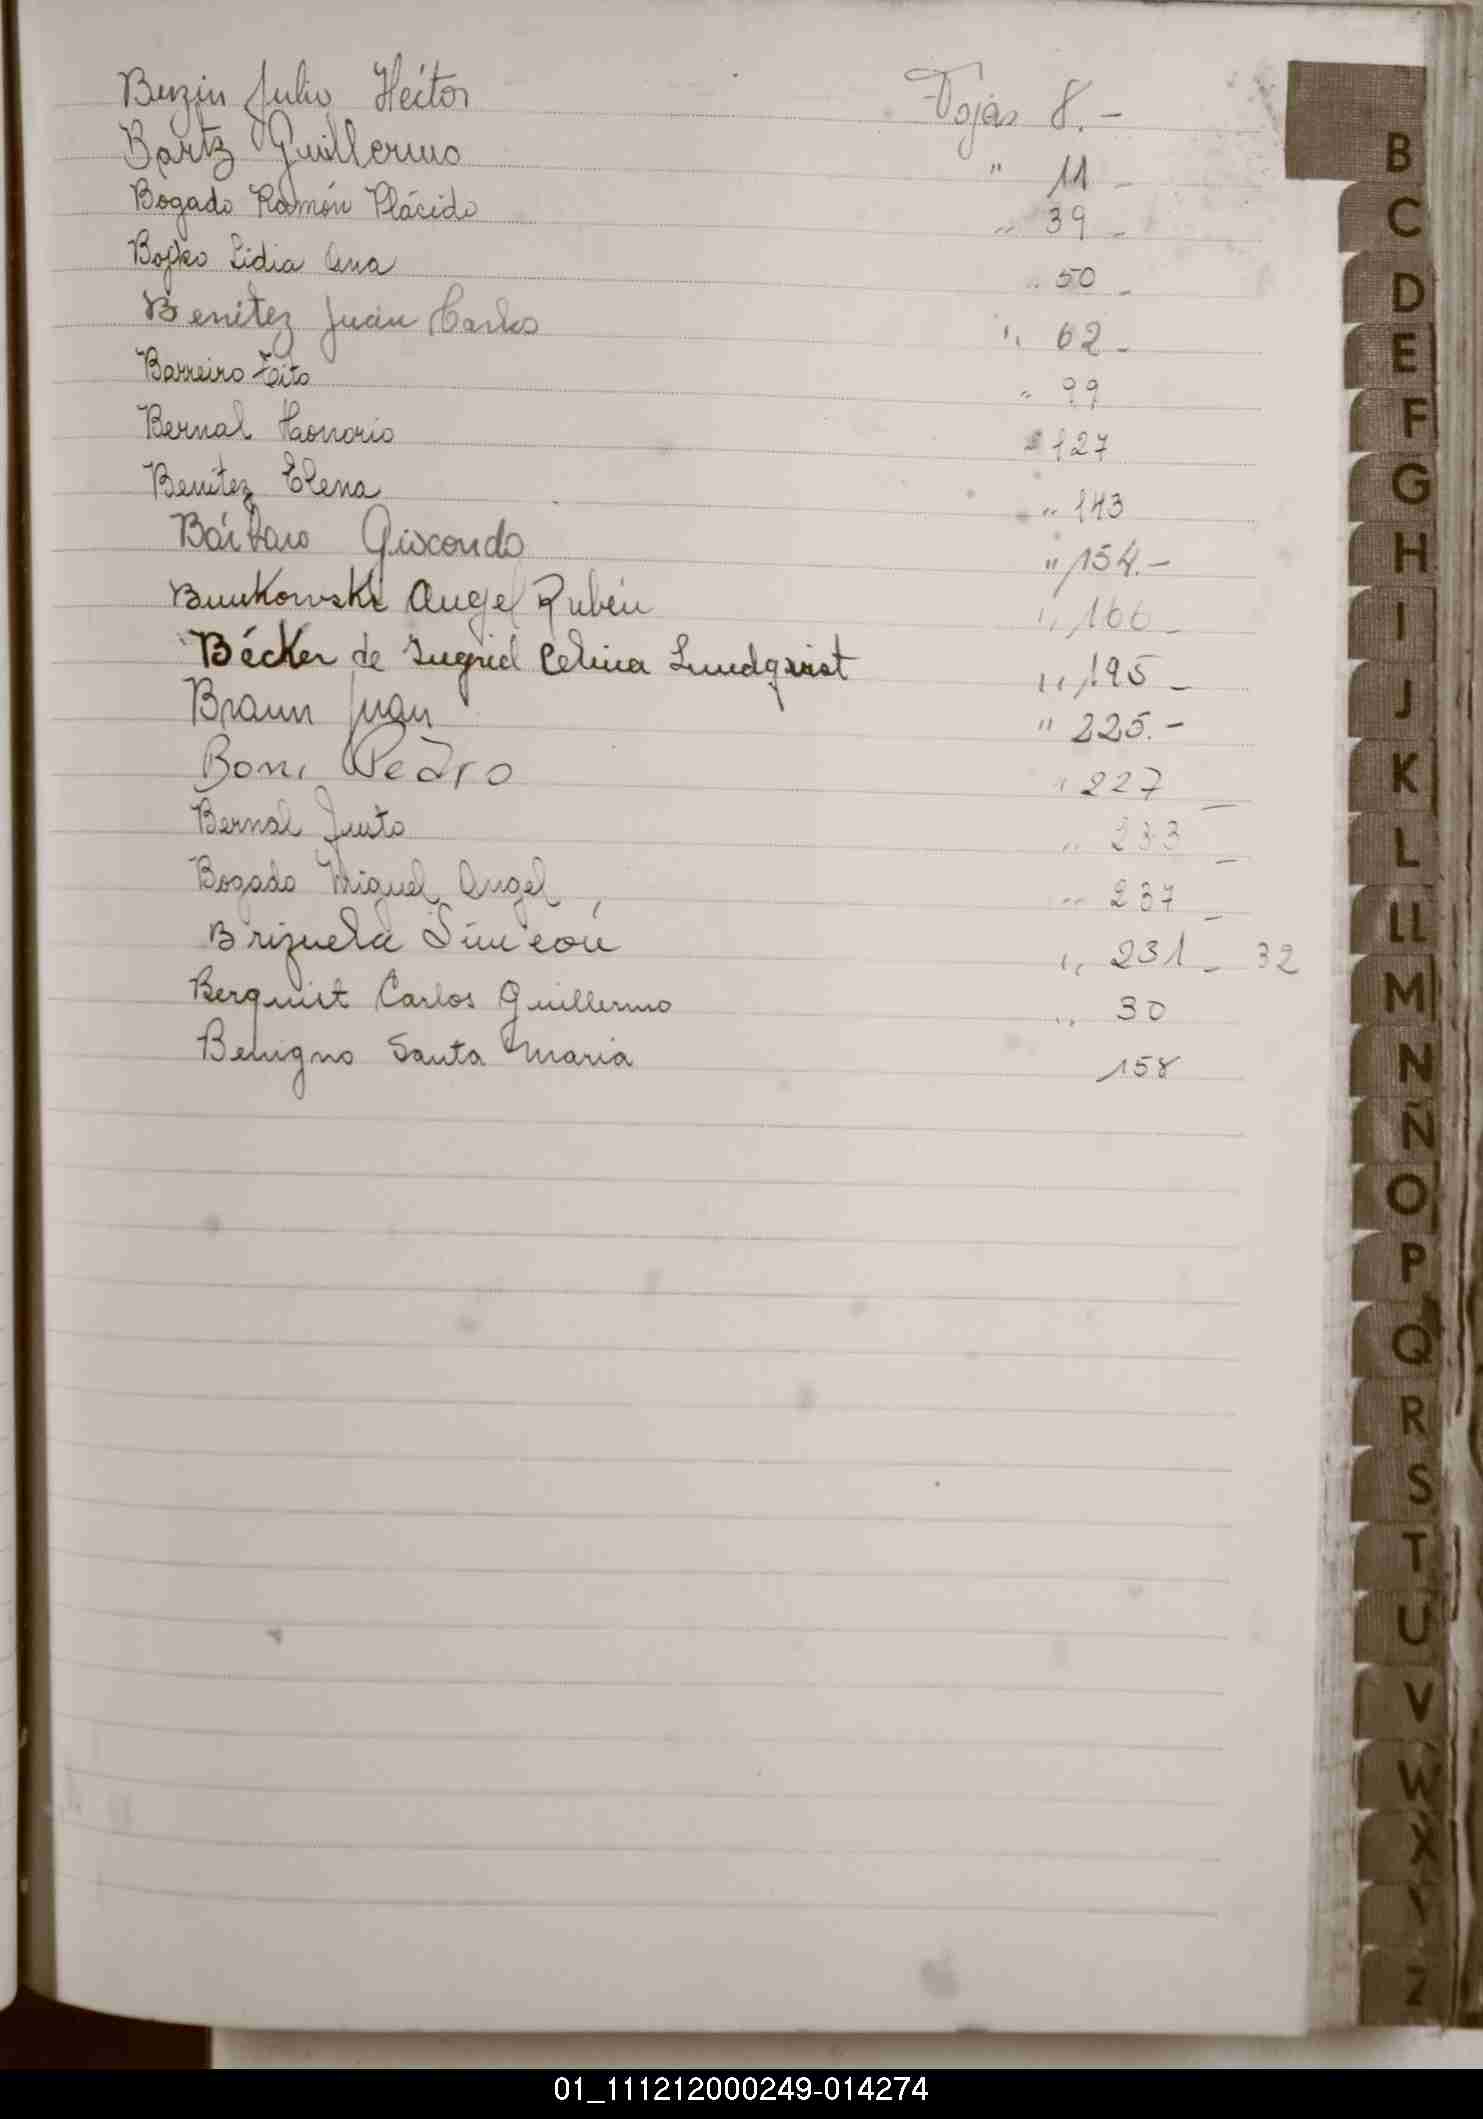 Buzin Julio Héctor Fojas 8.-
Bartz Guillermo " 11 -
Bogado Ramón Plácido " 39 -
Bojko Lidia Ana " 50 -
Benítez Juan Carlos " 62 -
Barreiro Tito " 99
Bernal Honorio " 127
Benítez Elena " 143
Bárbaro Gioconda " 154.-
Angel Rubén " 166 -
Bécker de Ingrid Celina Lundqvist " 195 -
Braun Juan " 225.-
Boni Pedro " 227 -
Bernal Justo " 233 -
Bogado Miguel Angel, " 237 -
Brizuela Simeón " 231 - 32
Berquist Carlos Guillermo " 30
Benigno Santa Maria 158
B
C
D
E
F
G
H
I
J
K
L
LL
M
N
Ñ
O
P
Q
R
S
T
U
V
W
X
Y
Z
01_111212000249-014274